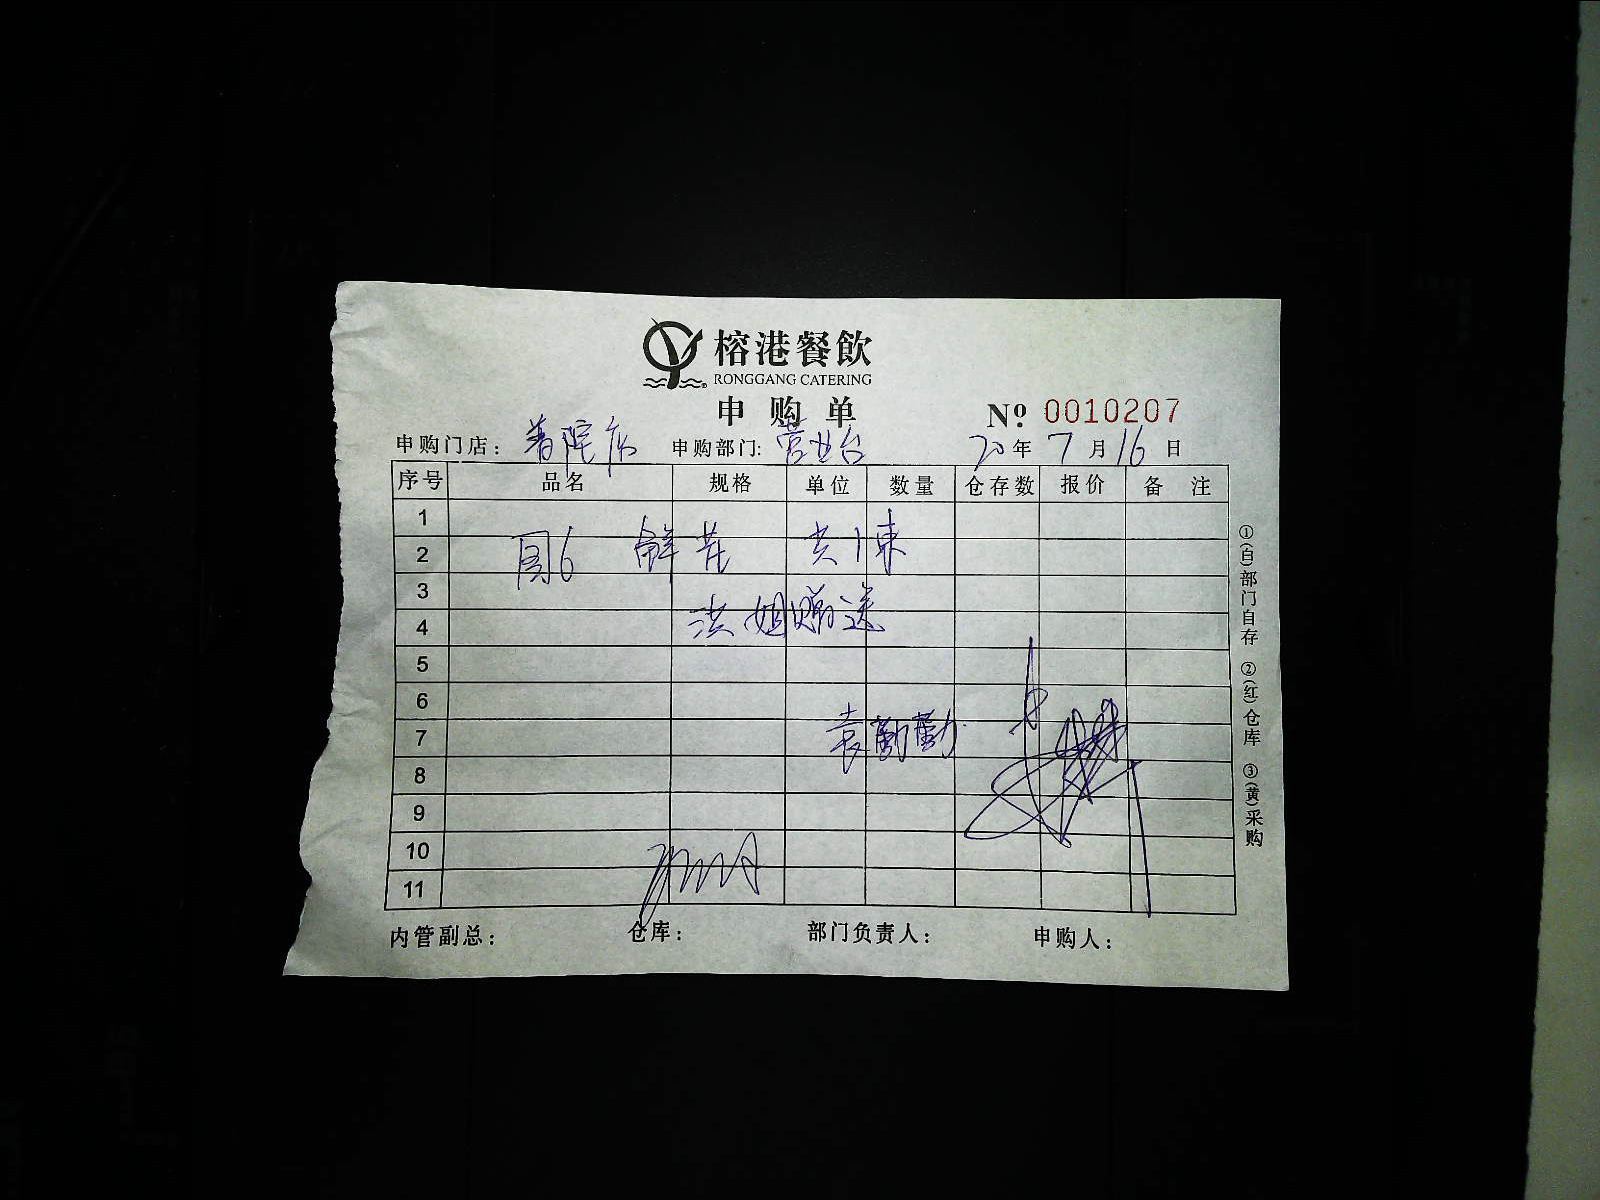 榕港餐飲
RONGGANG CATERING
申购单
№ 0010207
申购门店： 申购部门: 营业台 20年7月16日
序号 品名 规格 单位 数量 仓存数 报价 备注
1
2 圆6 鲜花 共1束
3
4 洪姐赠送
5
6
7 袁勤勤
8
9
10
11
内管副总： 仓库： 部门负责人： 申购人：
①(白)部门自存 ②(红)仓库 ③(黄)采购